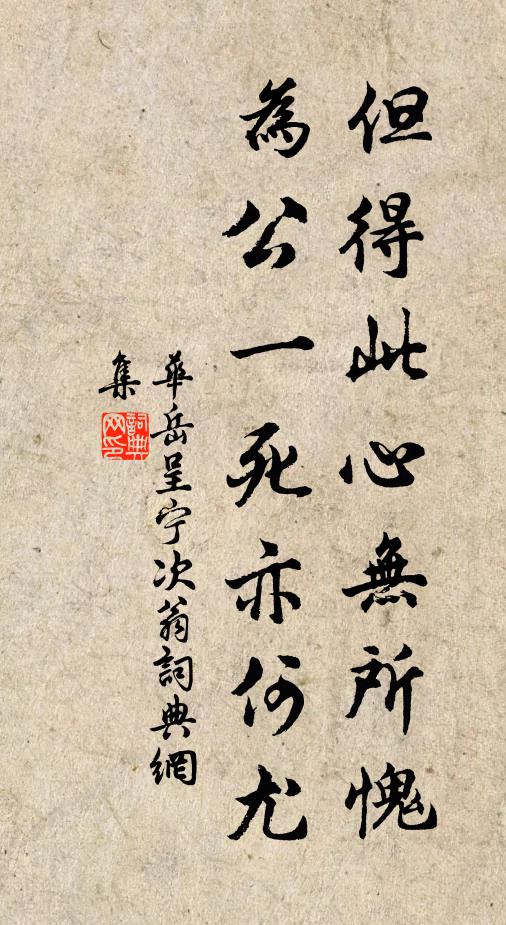 但得此心無所愧
為公一死亦何尤
華岳呈宁次翁詞典網
集
詞典
网印